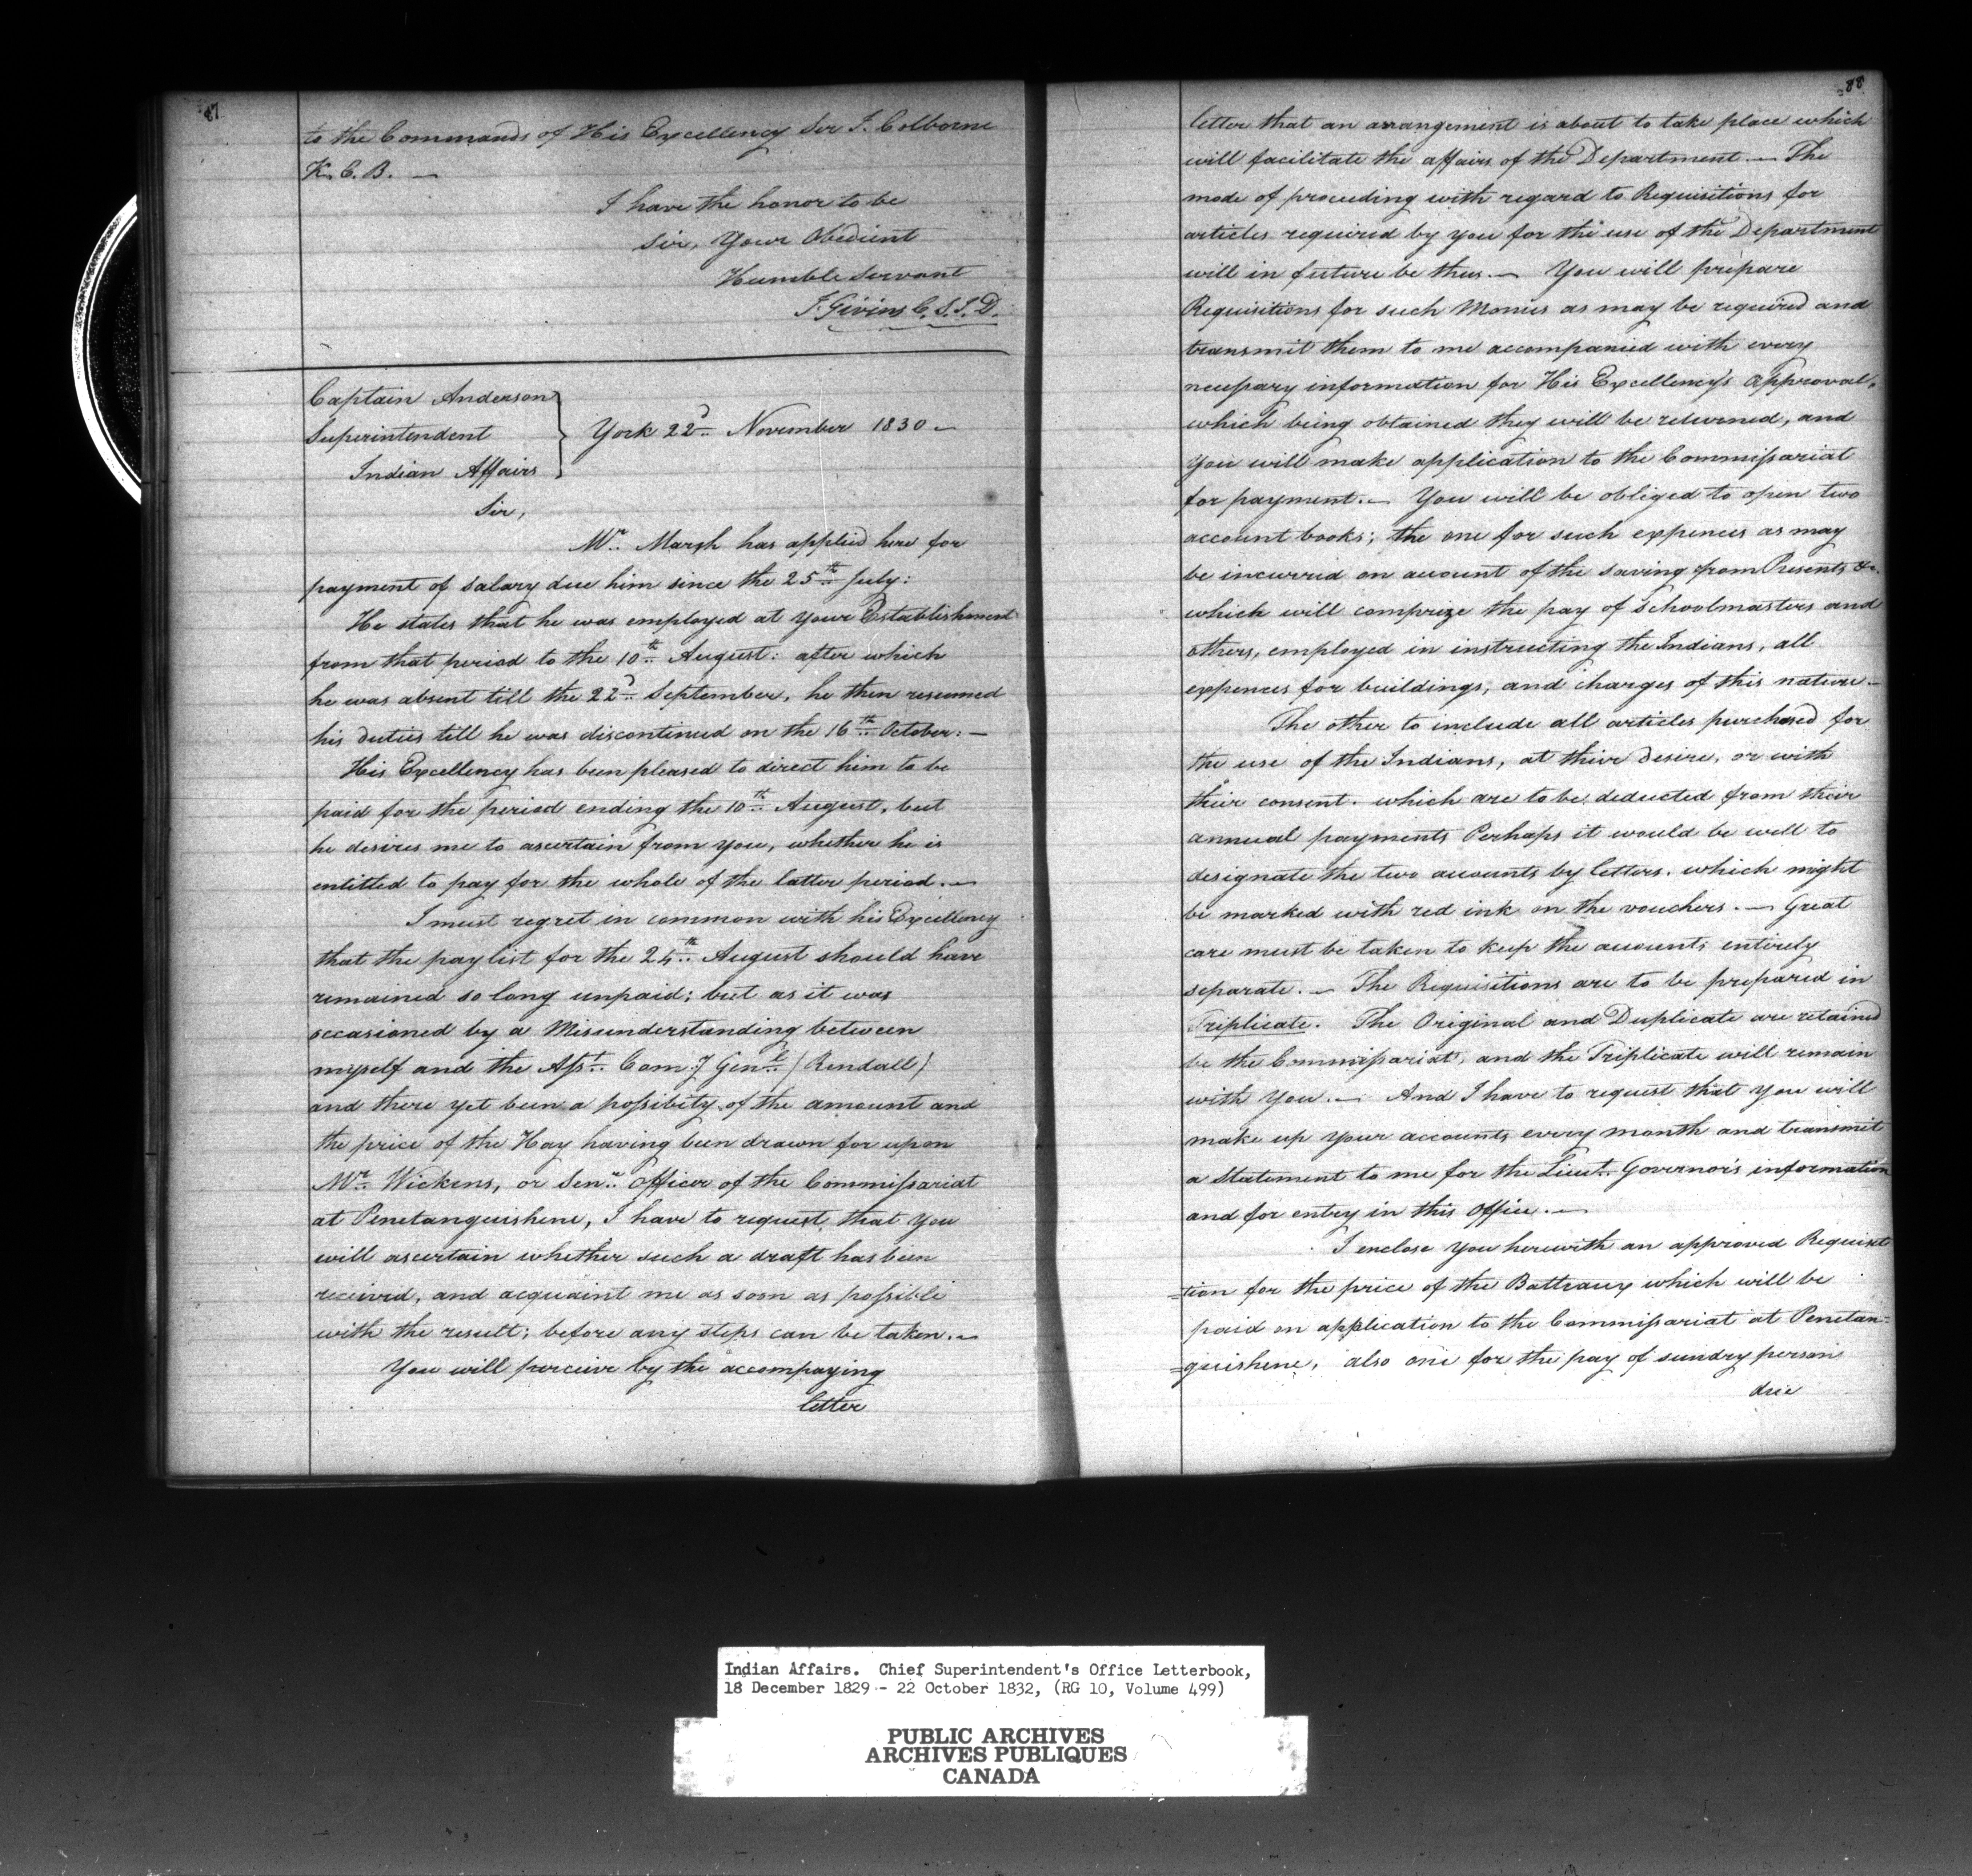 87
to the Commands of His Excellency Sir J. Colborne
K. C. B. —
I have the honor to be
Sir, Your Obedient
Humble Servant
J. Givins C. S. I. D.
Captain Anderson
Superintendent
Indian Affairs
York 22d November 1830 —
Sir,
Mr. Marsh has applied here for
payment of salary due him since the 25th July:
He states that he was employed at your Establishment
from that period to the 10th August: after which
he was absent till the 22d September, he then resumed
his duties till he was discontinued on the 16th October: —
His Excellency has been pleased to direct him to be
paid for the period ending the 10th August, but
he desires me to ascertain from you, whether he is
entitled to pay for the whole of the latter period. —
I must regret in common with his Excellency
that the pay list for the 24th August should have
remained so long unpaid; but as it was
occasioned by a Misunderstanding between
myself and the Asst. Com:y Genl. (Rendall)
and there yet been a possibity of the amount and
the price of the Hay having been drawn for upon
Mr. Wickens, or Senr. Officer of the Commissariat
at Penetanguishene, I have to request that you
will ascertain whether such a draft has been
received, and acquaint me as soon as possible
with the result; before any steps can be taken. —
You will perceive by the accompaying
letter
88
letter that an arrangement is about to take place which
will facilitate the affairs of the Department. — The
mode of proceeding with regard to Requisitions for
articles required by you for the use of the Department
will in future be thus. — You will prepare
Requisitions for such Monies as may be required and
transmit them to me accompanied with every
necessary information for His Excellency's Approval,
which being obtained they will be returned, and
you will make application to the Commissariat
for payment. — You will be obliged to open two
account books; the one for such expences as may
be incurred on account of the saving from Presents &c.
which will comprize the pay of Schoolmasters and
others, employed in instructing the Indians, all
expences for buildings, and charges of this nature —
The other to include all articles purchased for
the use of the Indians, at thier desire, or with
their consent. which are to be deducted from their
annual payments Perhaps it would be well to
designate the two accounts by letters. which might
be marked with red ink on the vouchers. — Great
care must be taken to keep the accounts entirely
separate. — The Requisitions are to be prepared in
Triplicate. The Original and Duplicate are retained
be the Commissariat, and the Triplicate will remain
with You. — And I have to request that you will
make up your accounts every month and transmit
a Statement to me for the Lieut. Governor's information
and for entry in this Office. —
I enclose you herewith an approved Requisi
=tion for the price of the Battraux which will be
paid on application to the Commissariat at Penetan=
=guishene, also one for the pay of sundry person
due
Indian Affairs. Chief Superintendent's Office Letterbook,
18 December 1829 - 22 October 1832, (RG 10, Volume 499)
PUBLIC ARCHIVES
ARCHIVES PUBLIQUES
CANADA